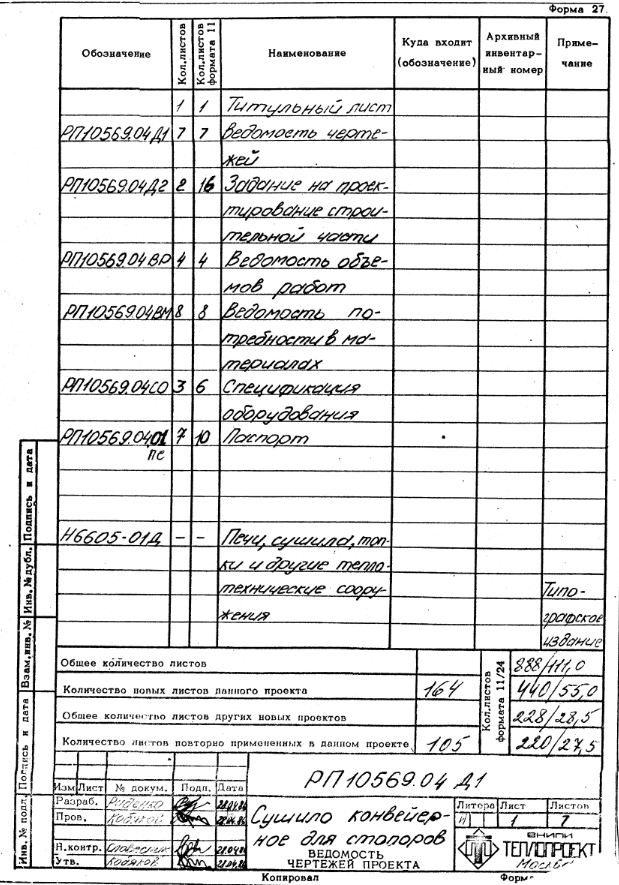 Форма 27.
Обозначение
Кол.листов
Кол.листов формата 11
Наименование
Куда входит (обозначение)
Архивный инвентар- ный номер
Приме- чание
1 1 Титульный лист
РП10569.04Д1 7 7 Ведомость черте-
жей
РП10569.04Д2 2 16 Задание на проек-
тирование строи-
тельной части
РП10569.04ВР 4 4 Ведомость объе-
мов работ
РП10569.04ВМ 8 8 Ведомость по-
требности в ма-
териалах
РП10569.04СО 3 6 Спецификация
оборудования
РП10569.04.01 7 10 Паспорт
ПС
Н6605-01Д - - Печи, сушила, топ-
ки и другие тепло-
технические соору- Типо-
жения графское
издание
Общее количество листов
Количество новых листов данного проекта 164
Общее количество листов других новых проектов
Количество листов повторно примененных в данном проекте 105
Кол.листов формата 11/24
888/111,0
440/55,0
228/28,5
220/27,5
РП10569.04 Д1
Изм Лист № докум. Подп. Дата
Разраб.
Пров. Кобяков
Н.контр.
Утв. Кобяков
Сушило конвейер-
ное для стопоров
ВЕДОМОСТЬ
ЧЕРТЕЖЕЙ ПРОЕКТА
Литера Лист Листов
И 1 7
ВНИПИ
ТЕПЛОПРОЕКТ
Москва
Копировал
Форм
Инв. № подл.
Подпись и дата
Взам.инв. №
Инв. № дубл.
Подпись и дата